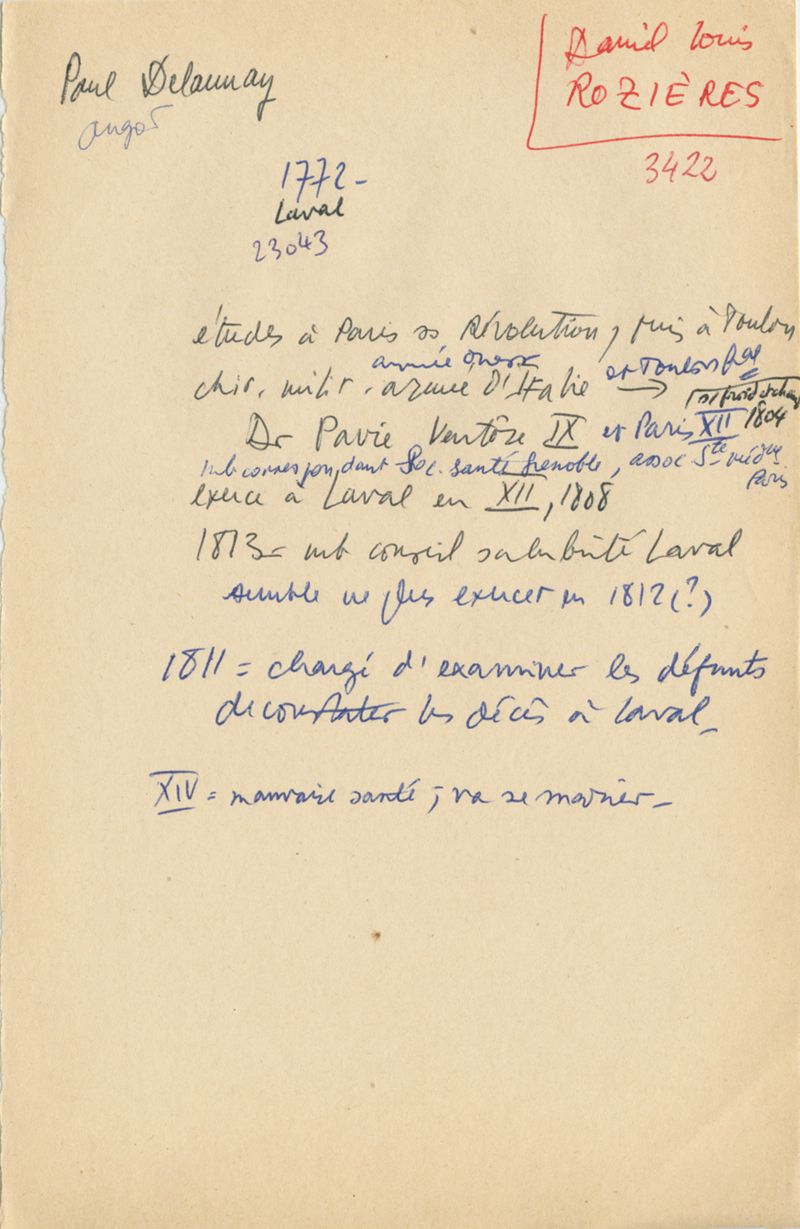 Paul Delaunay
Angot
Daniel Louis
ROZIÈRES
3422
1772-
Laval
23043
études à Paris ss Révolution, puis à Toulon
armée
et Toulon
chir. milit. armée d'Italie →
Dr Pavie Ventôse IX et Paris XII 1804
mb correspondant Soc. santé Grenoble, assoc Sté médic
Paris
exerce à Laval en XII, 1808
1813- mb conseil salubrité Laval
semble ne plus exercer en 1812 (?)
1811 = chargé d'examiner les défunts
de constater les décès à Laval_
XIV = mauvaise santé ; va se marier_